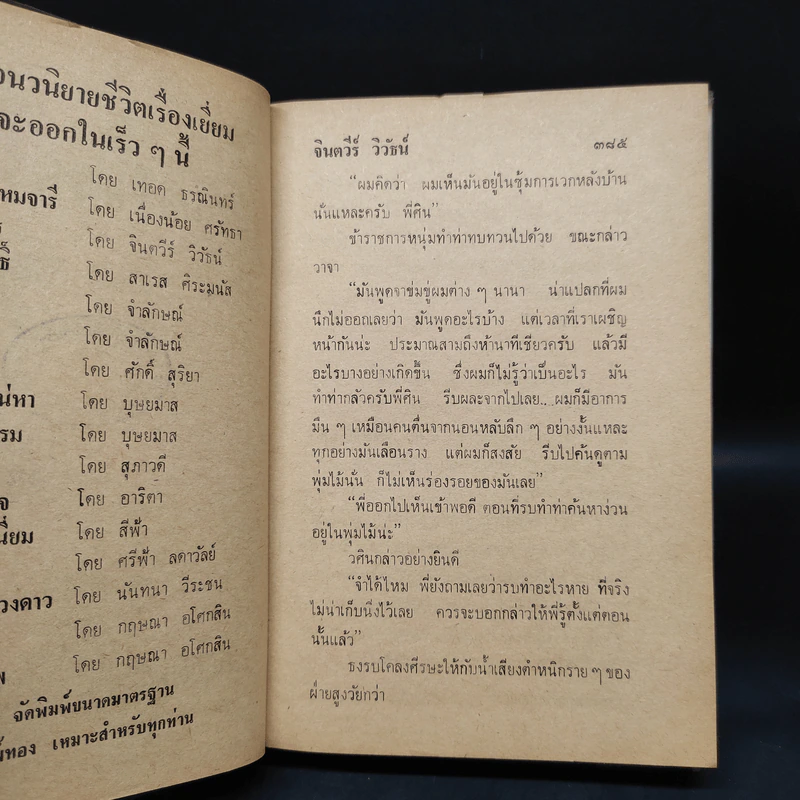 นวนิยายชีวิตเรื่องเยี่ยม
จะออกในเร็ว ๆ นี้
โดย เทอด ธรณินทร์
หมจารี โดย เนื่องน้อย ศรัทธา
โดย จินตวีร์ วิวัธน์
โดย สาเรส ศิระมนัส
โดย จำลักษณ์
โดย จำลักษณ์
โดย ศักดิ์ สุริยา
น่หา โดย บุษยมาส
รม โดย บุษยมาส
โดย สุภาวดี
จ โดย อาริตา
โดย สีฟ้า
โดย ศรีฟ้า ลดาวัลย์
วงดาว โดย นันทนา วีระชน
โดย กฤษณา อโศกสิน
โดย กฤษณา อโศกสิน
จัดพิมพ์ขนาดมาตรฐาน
ทอง เหมาะสำหรับทุกท่าน
จินตวีร์ วิวัธน์ ๓๘๕
“ผมคิดว่า ผมเห็นมันอยู่ในซุ้มการเวกหลังบ้าน
นั่นแหละครับ พี่ศิน”
ข้าราชการหนุ่มทำท่าทบทวนไปด้วย ขณะกล่าว
วาจา
“มันพูดจาข่มขู่ผมต่าง ๆ นานา น่าแปลกที่ผม
นึกไม่ออกเลยว่า มันพูดอะไรบ้าง แต่เวลาที่เราเผชิญ
หน้ากันน่ะ ประมาณสามถึงห้านาทีเชียวครับ แล้วมี
อะไรบางอย่างเกิดขึ้น ซึ่งผมก็ไม่รู้ว่าเป็นอะไร มัน
ทำท่ากลัวครับพี่ศิน รีบผละจากไปเลย...ผมก็มีอาการ
มึน ๆ เหมือนคนตื่นจากนอนหลับลึก ๆ อย่างงั้นแหละ
ทุกอย่างมันเลือนราง แต่ผมก็สงสัย รีบไปค้นดูตาม
พุ่มไม้นั่น ก็ไม่เห็นร่องรอยของมันเลย”
“พี่ออกไปเห็นเข้าพอดี ตอนที่รบทำท่าค้นหาง่วน
อยู่ในพุ่มไม้น่ะ”
วศินกล่าวอย่างยินดี
“จำได้ไหม พี่ยังถามเลยว่ารบทำอะไรหาย ที่จริง
ไม่น่าเก็บนิ่งไว้เลย ควรจะบอกกล่าวให้พี่รู้ตั้งแต่ตอน
นั้นแล้ว”
ธงรบโคลงศีรษะให้กับน้ำเสียงตำหนิกราย ๆ ของ
ฝ่ายสูงวัยกว่า